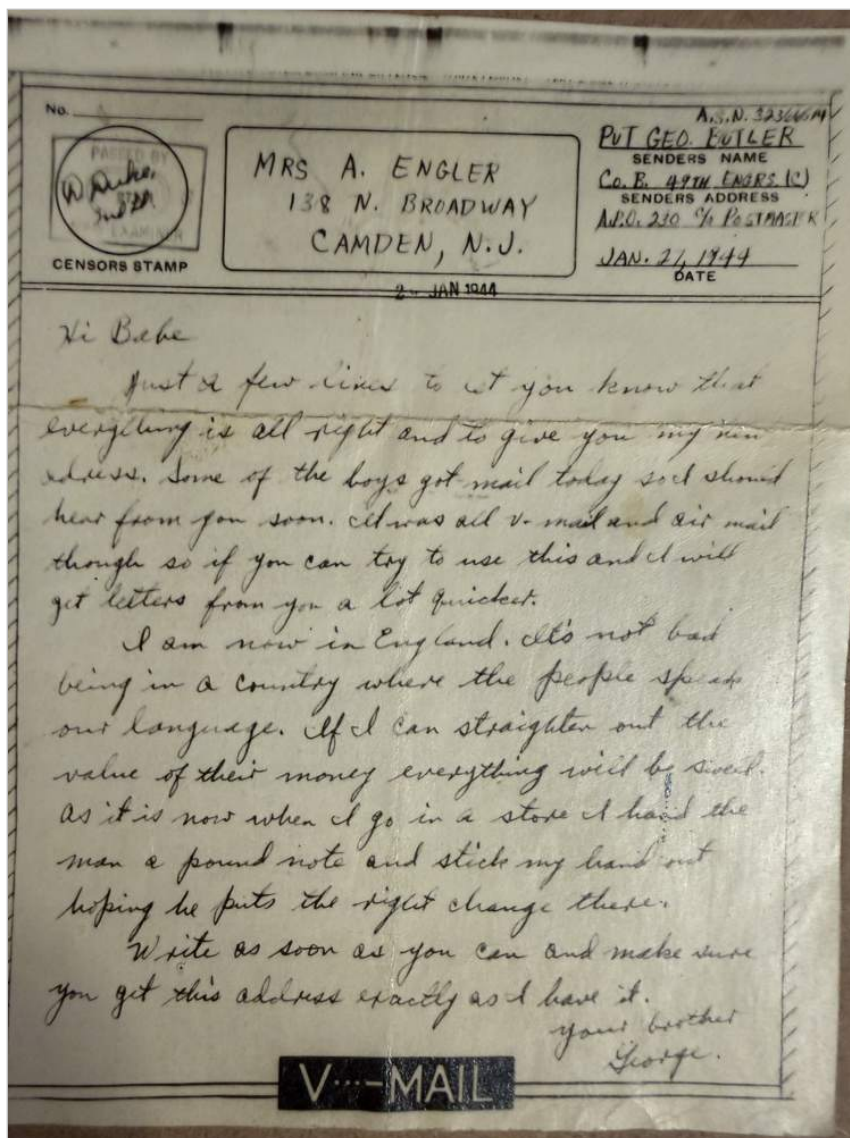 No.
PASSED BY
EXAMINER
CENSORS STAMP
MRS A. ENGLER
138 N. BROADWAY
CAMDEN, N.J.
A.S.N.
PVT GEO. BUTLER
SENDERS NAME
Co. B. 49TH ENGRS. (C)
SENDERS ADDRESS
A.P.O. 230 c/o POSTMASTER
JAN. 21, 1944
DATE
JAN 1944
Hi Babe
Just a few lines to let you know that
everything is all right and to give you my new
adress. Some of the boys got mail today so I should
hear from you soon. It was all v-mail and air mail
though so if you can try to use this and I will
get letters from you a lot quicker.
I am now in England. It's not bad
being in a country where the people speak
our language. If I can straighten out the
value of their money everything will be swell.
As it is now when I go in a store I hand the
man a pound note and stick my hand out
hoping he puts the right change there.
Write as soon as you can and make sure
you get this address exactly as I have it.
your brother
George.
V···-MAIL